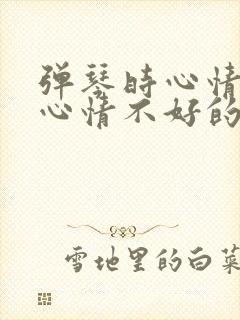 弹琴时心情
心情不好的
雪地里的白菜